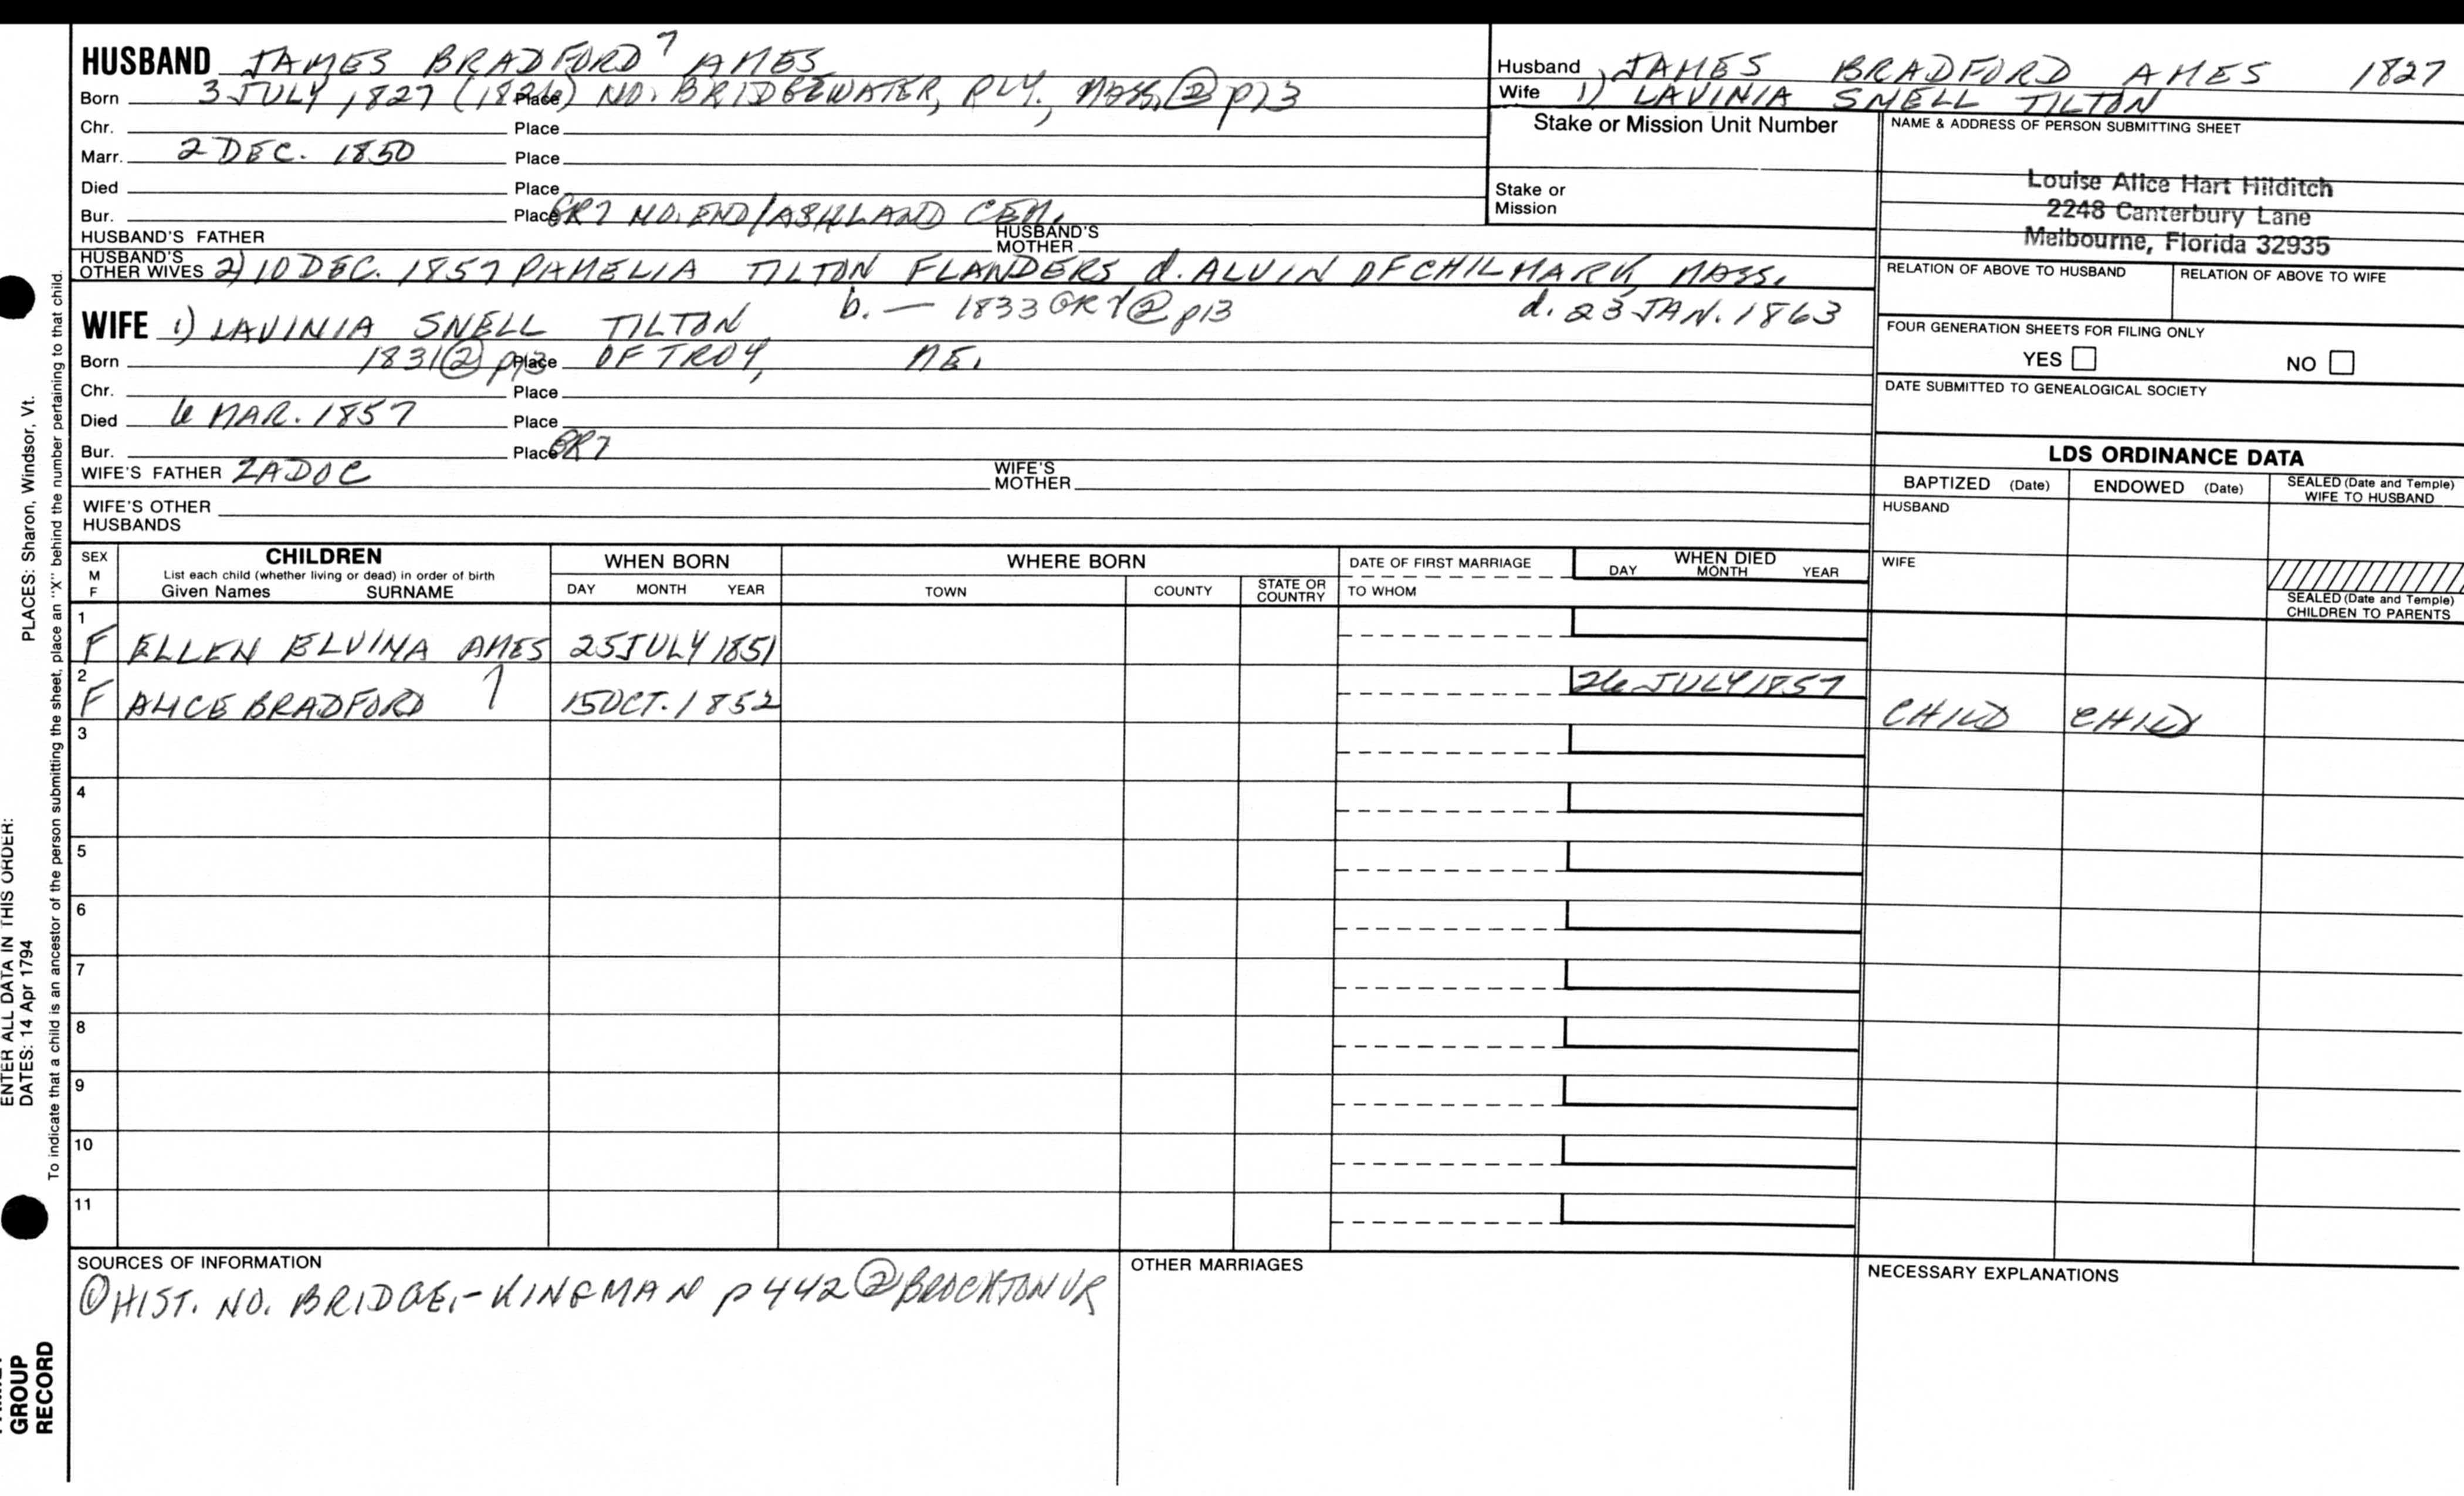 HUSBAND JAMES BRADFORD 7 AMES
Born 3 JULY 1827 (1826) Place NO. BRIDGEWATER, PLY., MASS. ② p13
Chr. Place
Marr. 2 DEC. 1850 Place
Died Place
Bur. Place GR7 NO. END/ASHLAND CEM.
HUSBAND'S FATHER HUSBAND'S MOTHER
HUSBAND'S OTHER WIVES 2) 10 DEC. 1857 PAMELIA TILTON FLANDERS d. ALVIN OF CHILMARK, MASS.
b. — 1833 GR7 ② p13 d. 23 JAN. 1863
WIFE 1) LAVINIA SNELL TILTON
Born 1831 ② p13 Place OF TROY, ME.
Chr. Place
Died 6 MAR. 1857 Place
Bur. Place GR7
WIFE'S FATHER ZADOC WIFE'S MOTHER
WIFE'S OTHER HUSBANDS
Husband JAMES BRADFORD AMES 1827
Wife 1) LAVINIA SNELL TILTON
Stake or Mission Unit Number
Stake or Mission
NAME & ADDRESS OF PERSON SUBMITTING SHEET
Louise Alice Hart Hilditch
2248 Canterbury Lane
Melbourne, Florida 32935
RELATION OF ABOVE TO HUSBAND RELATION OF ABOVE TO WIFE
FOUR GENERATION SHEETS FOR FILING ONLY
YES NO
DATE SUBMITTED TO GENEALOGICAL SOCIETY
LDS ORDINANCE DATA
BAPTIZED (Date) ENDOWED (Date) SEALED (Date and Temple) WIFE TO HUSBAND
HUSBAND
WIFE
SEALED (Date and Temple) CHILDREN TO PARENTS
SEX M F CHILDREN WHEN BORN WHERE BORN DATE OF FIRST MARRIAGE WHEN DIED
List each child (whether living or dead) in order of birth
Given Names SURNAME DAY MONTH YEAR TOWN COUNTY STATE OR COUNTRY TO WHOM DAY MONTH YEAR
1 F ELLEN ELVINA AMES 25 JULY 1851
2 F ALICE BRADFORD 15 OCT. 1852 26 JULY 1857 CHILD CHILD
3
4
5
6
7
8
9
10
11
SOURCES OF INFORMATION
① HIST. NO. BRIDGE.-KINGMAN p442 ② BROCKTON VR
OTHER MARRIAGES
NECESSARY EXPLANATIONS
ENTER ALL DATA IN THIS ORDER:
DATES: 14 Apr 1794 PLACES: Sharon, Windsor, Vt.
To indicate that a child is an ancestor of the person submitting the sheet, place an "X" behind the number pertaining to that child.
GROUP
RECORD